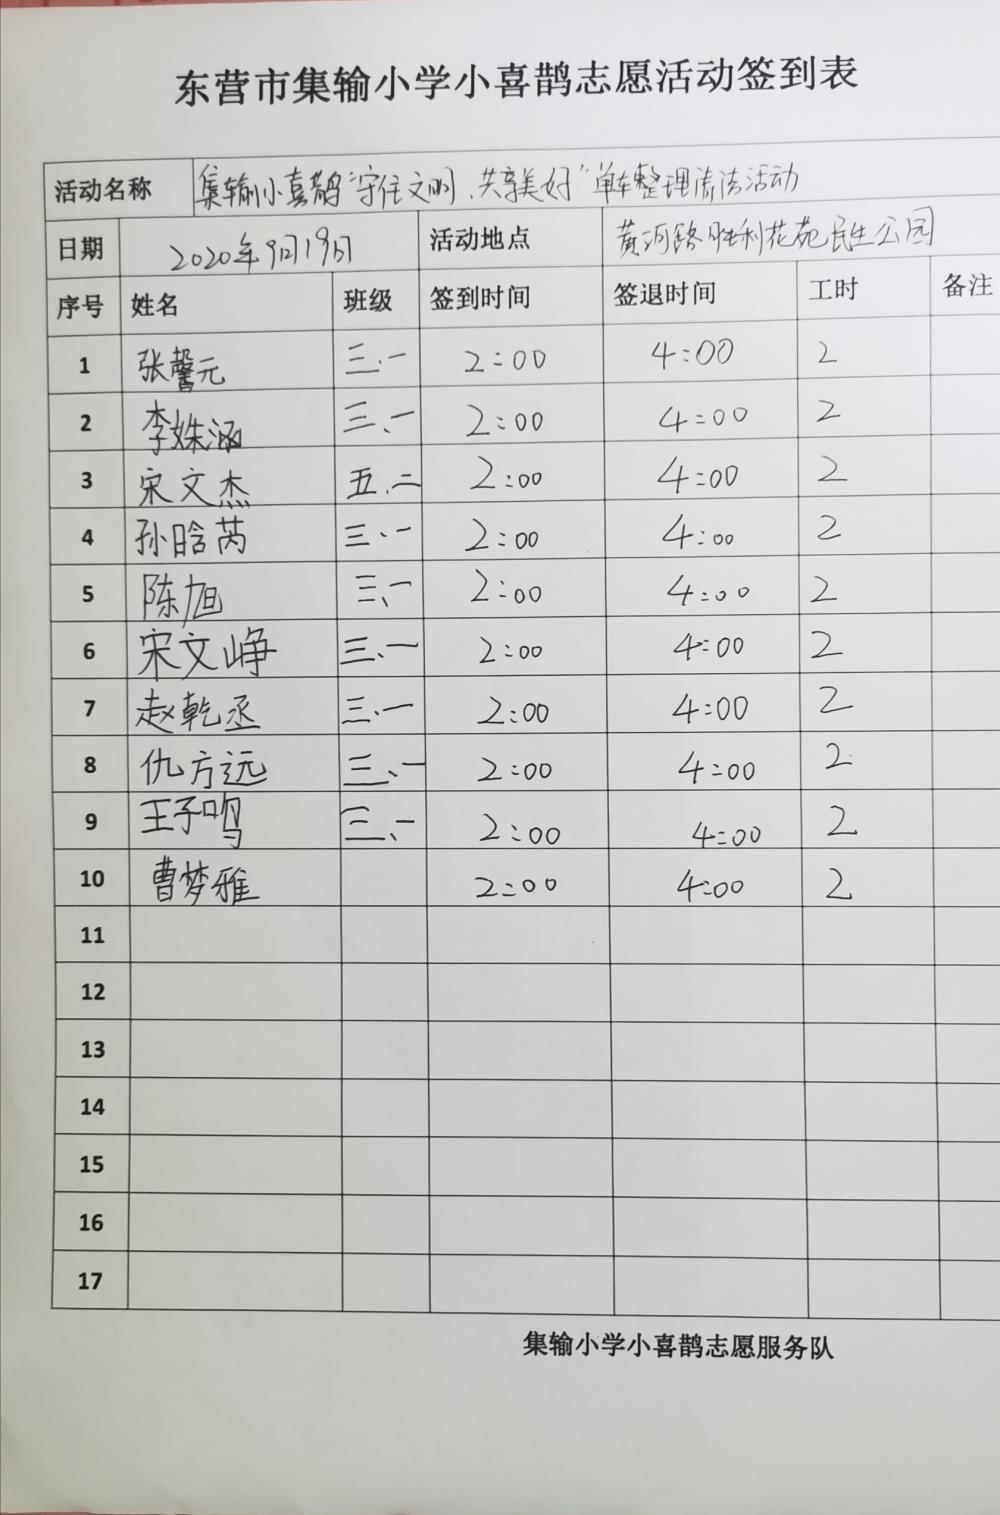 东营市集输小学小喜鹊志愿活动签到表
活动名称 集输小喜鹊“守住文明、共享美好”单车整理清洁活动
日期 2020年9月19日 活动地点 黄河路胜利花苑民生公园
序号 姓名 班级 签到时间 签退时间 工时 备注
1 张馨元 三.一 2:00 4:00 2
2 李姝涵 三、一 2:00 4:00 2
3 宋文杰 五.二 2:00 4:00 2
4 孙晗芮 三.一 2:00 4:00 2
5 陈旭 三、一 2:00 4:00 2
6 宋文峥 三、一 2:00 4:00 2
7 赵乾丞 三.一 2:00 4:00 2
8 仇方远 三、一 2:00 4:00 2
9 王子鸣 三、一 2:00 4:00 2
10 曹梦雅 2:00 4:00 2
11
12
13
14
15
16
17
集输小学小喜鹊志愿服务队